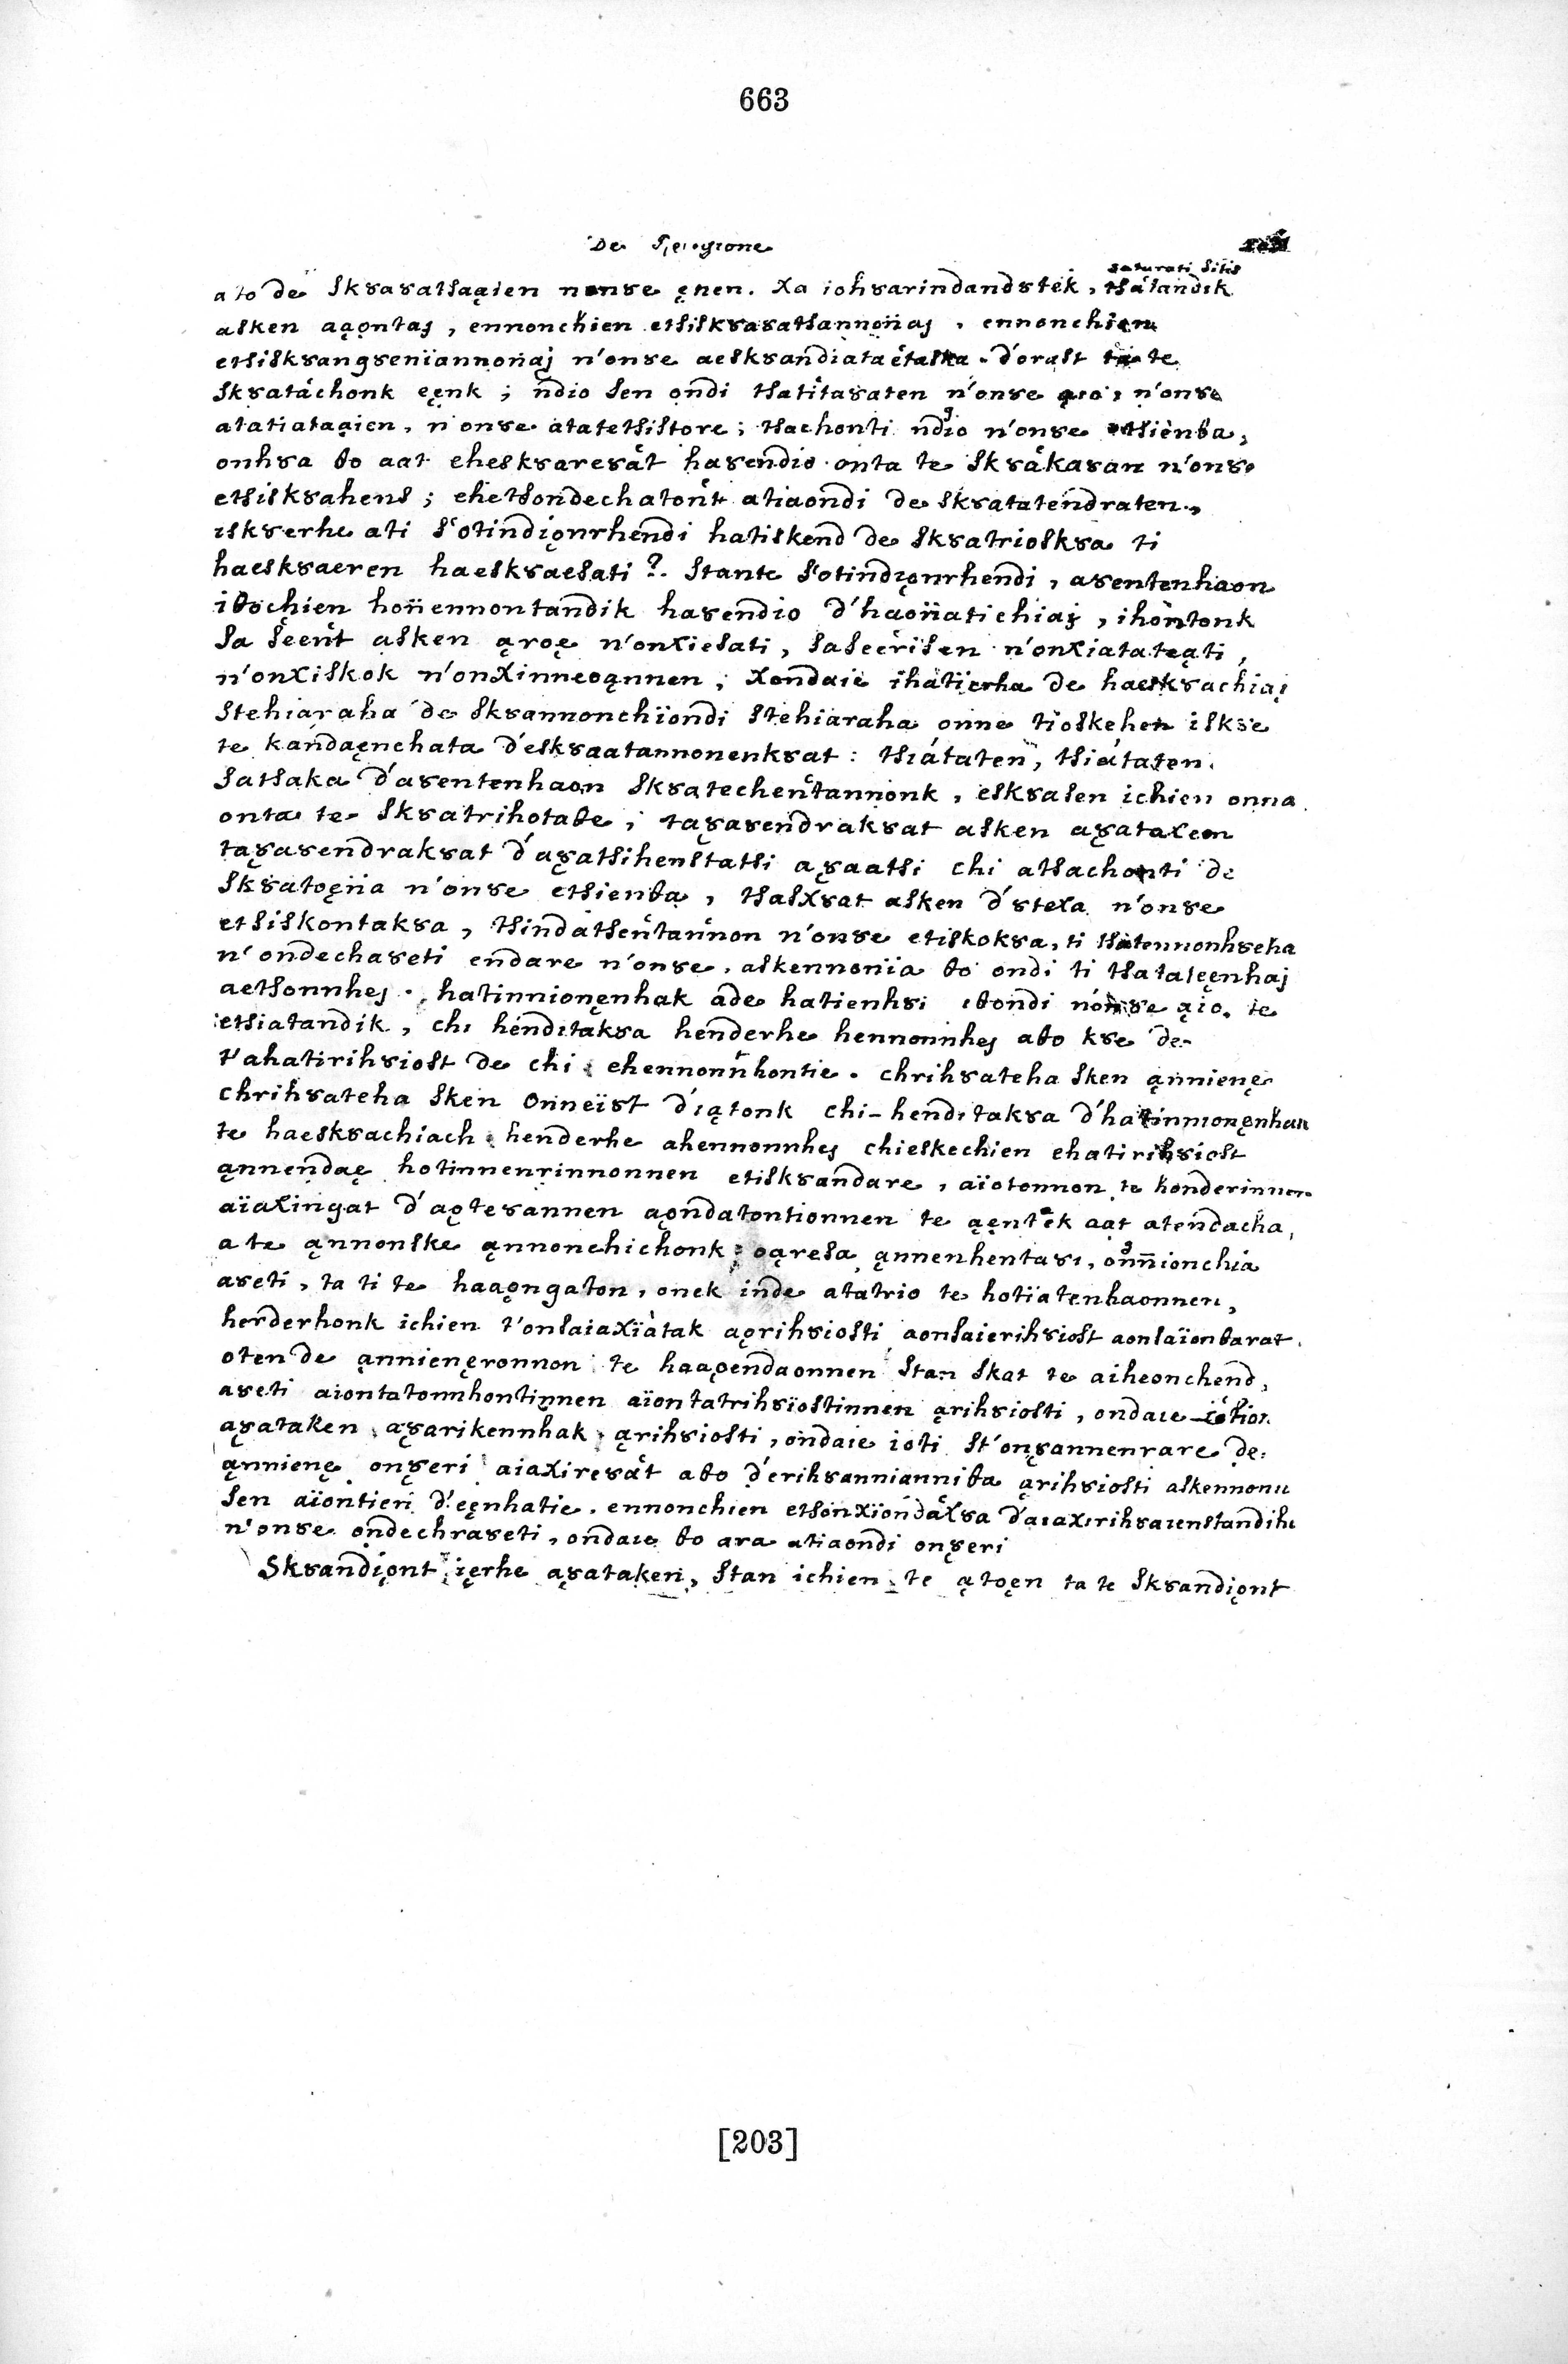 663
De Religione
saturati sitis
ato de skȣaȣatsaa̧ien nonȣe ȩnen. χa iohȣarindandȣtek, tsátandik
asken aa̧o̧ntas̨, ennonchien etsiskȣaȣatsannonas̨, ennonchien
etsiskȣangȣeniannonas̨ n'onȣe aeskȣandiataétaska. d'oraȣt te
skȣatáchonk eȩnk; ndio sen ondi tsatítaȣaten n'onȣe n'onȣe
atatiataa̧ien, n'onȣe atatetsistore; tsachonti ndio n'onȣe etsienθa,
onhȣa θo aat eheskȣareȣát haȣendio onta te skȣákaȣan n'onȣe
etsiskȣahens; ehetsondechatont atiaondi de skȣatatendraten,
iskȣerhe ati s'otindio̧nrhendi hatiskend de skȣatrioskȣa ti
haeskȣaeren haeskȣaesati? stante s'otindio̧nrhendi, aȣentenhaon
iθochien honennontandik haȣendio d'haonatichias̨, ihontonk
sa séent asken a̧roȩ n'onχiesati, saseérisen n'onχiatatea̧ti,
n'onχiskok n'onχinneoa̧nnen, χondaie ihátierha de haeskȣachias̨
stehiaraha de skȣannonchiondi stehiaraha onne tioskehen iskȣe
te kandaȩnchata d'eskȣaatannonenkȣat: tsiátaten, tsiátaten.
satsaka d'aȣentenhaon skȣatechentannonk, eskȣasen ichien onna
onta te skȣatrihotaθe; taȣ̧aȣendrakȣat asken aȣ̧ataχen
taȣ̧aȣendrakȣat d'aȣ̧atsihenstatsi aȣ̧aatsi chi atsachonti de
skȣatoȩna n'onȣe etsienθa, tsalχȣat asken d'ȣteχa n'onȣe
etsiskontakȣa, tsindatsentannon n'onȣe etiskokȣa, ti tsatonnonhȣeha
n'ondechaȣeti endare n'onȣe, askennonia θo ondi ti tsataseȩnhas̨
aetsonnhes̨. hatinnionȩnhak ade hatienhȣi iθondi nónȣe a̧io, te
etsiatandik, chi henditakȣa henderhe hennonnhes̨ aθo kȣe de
t'ahatirihȣiost de chi ehennonnhontie. chrihȣateha sken a̧nnienȩ
chrihȣateha sken Onneïȣt d'ia̧tonk chi-henditakȣa d'hatinnionȩnhan
te haeskȣachiach henderhe ahennonnhes̨ chieskechien ehatirihȣiost
a̧nnendaȩ hotinnenrinnonnen etiskȣandare, aïotonnon te honderinnen
aïaχingat d'ao̧teȣannen ao̧ndatontionnen te a̧ȩntek aat atendacha,
ate a̧nnonske a̧nnonchichonk; oa̧resa a̧nnenhentaȣi, onnionchia
aȣeti, ta ti te haao̧ngaton, onek inde atatrio te hotïatenhaonnen,
herderhonk ichien t'onsaiaχïàtak ao̧rihȣiosti aonsaierihȣiost aonsaïonθarat.
oten de a̧nnienȩronnon te haao̧endaonnen stan skat te aiheonchend,
aȣeti aiontatonnhontinnen aïontatrihȣïostinnen a̧rihȣiosti, ondaie iótion
aȣ̧ataken aȣ̧arikennhak a̧rihȣiosti, ondaie ioti st'onȣ̧annenrare de
a̧nnienȩ onȣ̧eri aiaχireȣát aθo d'erihȣannianniθa a̧rihȣiosti askennonn
sen aïontien d'eȩnhatie. ennonchien etsonχïondáχȣa d'aiaχirihȣaienstandihe
n'onȣe ondechraȣeti, ondaie θo ara atiaondi onȣ̧eri
Skȣandio̧nt iȩrhe aȣ̧ataken, stan ichien te a̧toȩn ta te skȣandio̧nt
[203]